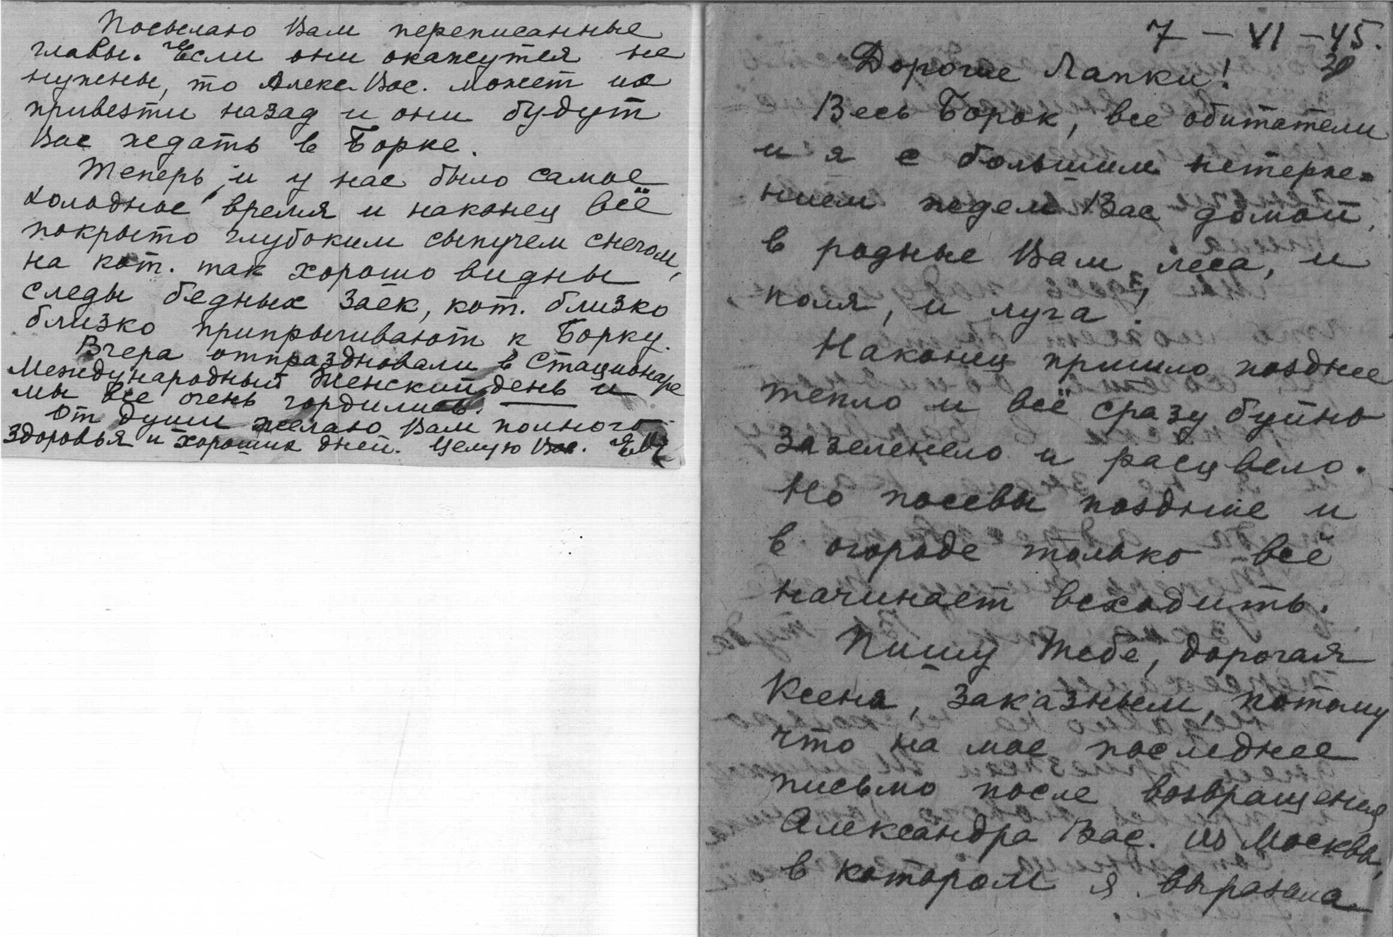 Посылаю Вам переписанные
главы. Если они окажутся не
нужны, то Алекс. Вас. может их
привезти назад и они будут
Вас ждать в Борке.
Теперь и у нас было самое
холодное время и наконец всё
покрыто глубоким сыпучем снегом,
на кот. так хорошо видны
следы бедных заек, кот. близко
близко припрыгивают к Борку.
Вчера отпраздновали в Стационаре
Международный Женский день и
мы все очень гордились.
От души желаю Вам полного
здоровья и хороших дней. Целую Вас.
7 – VI – 45.
30
Дорогие Лапки!
Весь Борок, все обитатели
и я с большим нетерпе=
нием ждем Вас домой,
в родные Вам леса, и
поля, и луга!
Наконец пришло позднее
тепло и всё сразу буйно
зазеленело и расцвело.
Но посевы поздние и
в огороде только всё
начинает всходить.
Пишу Тебе, дорогая
Ксеня, заказным, потому
что на мое последнее
письмо после возвращения
Александра Вас. из Москвы,
в котором я выразила